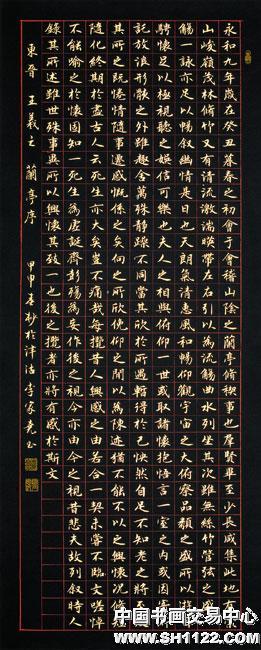 永和九年歲在癸丑暮春之初會于會稽山陰之蘭亭脩稧事也羣賢畢至少長咸集此地有崇
山峻嶺茂林脩竹又有清流激湍暎帶左右引以為流觴曲水列坐其次雖無絲竹管弦之盛一
觴一詠亦足以暢叙幽情是日也天朗氣清惠風和暢仰觀宇宙之大俯察品類之盛所以遊目
騁懷足以極視聽之娛信可樂也夫人之相與俯仰一世或取諸懷抱悟言一室之內或因寄所
託放浪形骸之外雖趣舍萬殊靜躁不同當其欣於所遇暫得於己怏然自足不知老之將至及
其所之既惓情隨事遷感慨係之矣向之所欣俛仰之間以為陳迹猶不能不以之興懷況脩短
隨化終期於盡古人云死生亦大矣豈不痛哉每攬昔人興感之由若合一契未嘗不臨文嗟悼
不能喻之於懷固知一死生為虛誕齊彭殤為妄作後之視今亦由今之視昔悲夫故列叙時人
錄其所述雖世殊事異所以興懷其致一也後之攬者亦將有感於斯文
東晉 王羲之 蘭亭序 甲申春抄於津沽李家堯書
中国书画交易中心
www.SH1122.com